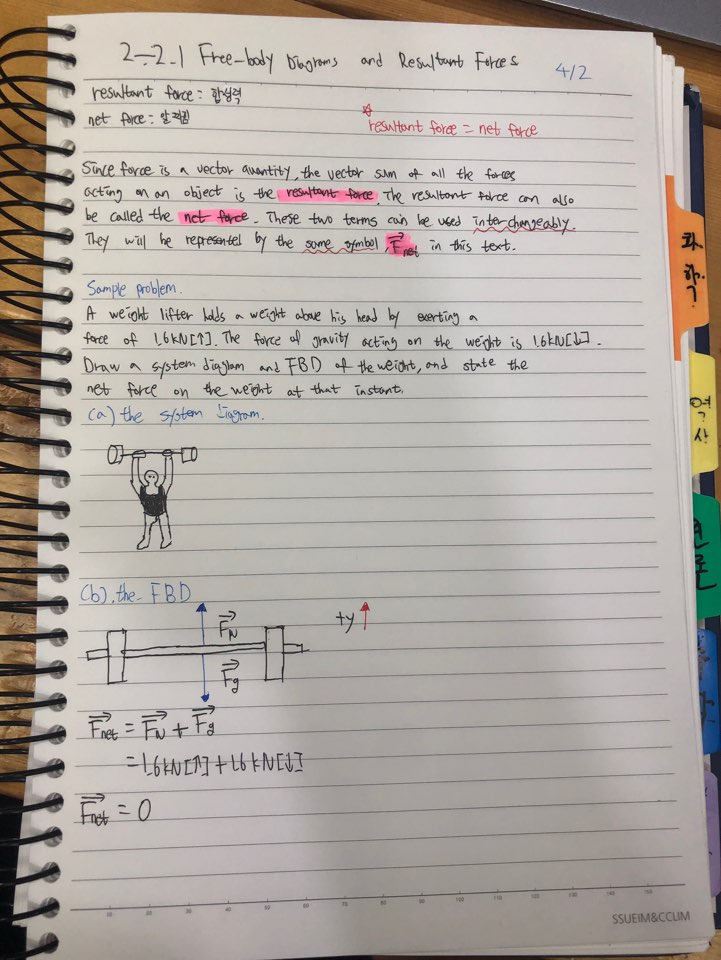 2-2.1 Free-body Diagrams and Resultant Forces
4/2
resultant force : 합성력
net force : 알짜힘
☆ resultant force = net force
Since force is a vector quantity, the vector sum of all the forces
acting on an object is the resultant force. The resultant force can also
be called the net force. These two terms can be used interchangeably.
They will be represented by the same symbol, F⃗net in this text.
Sample problem.
A weight lifter holds a weight above his head by exerting a
force of 1.6kN[↑]. The force of gravity acting on the weight is 1.6kN[↓].
Draw a system diagram and FBD of the weight, and state the
net force on the weight at that instant.
(a) the system diagram.
(b). the FBD
F⃗N
+y
F⃗g
F⃗net = F⃗N + F⃗g
= 1.6kN[↑] + 1.6kN[↓]
F⃗net = 0
과학
역사
10 20 30 40 50 60 70 80 90 100 110 120 130 140 150
SSUEIM&CCLIM